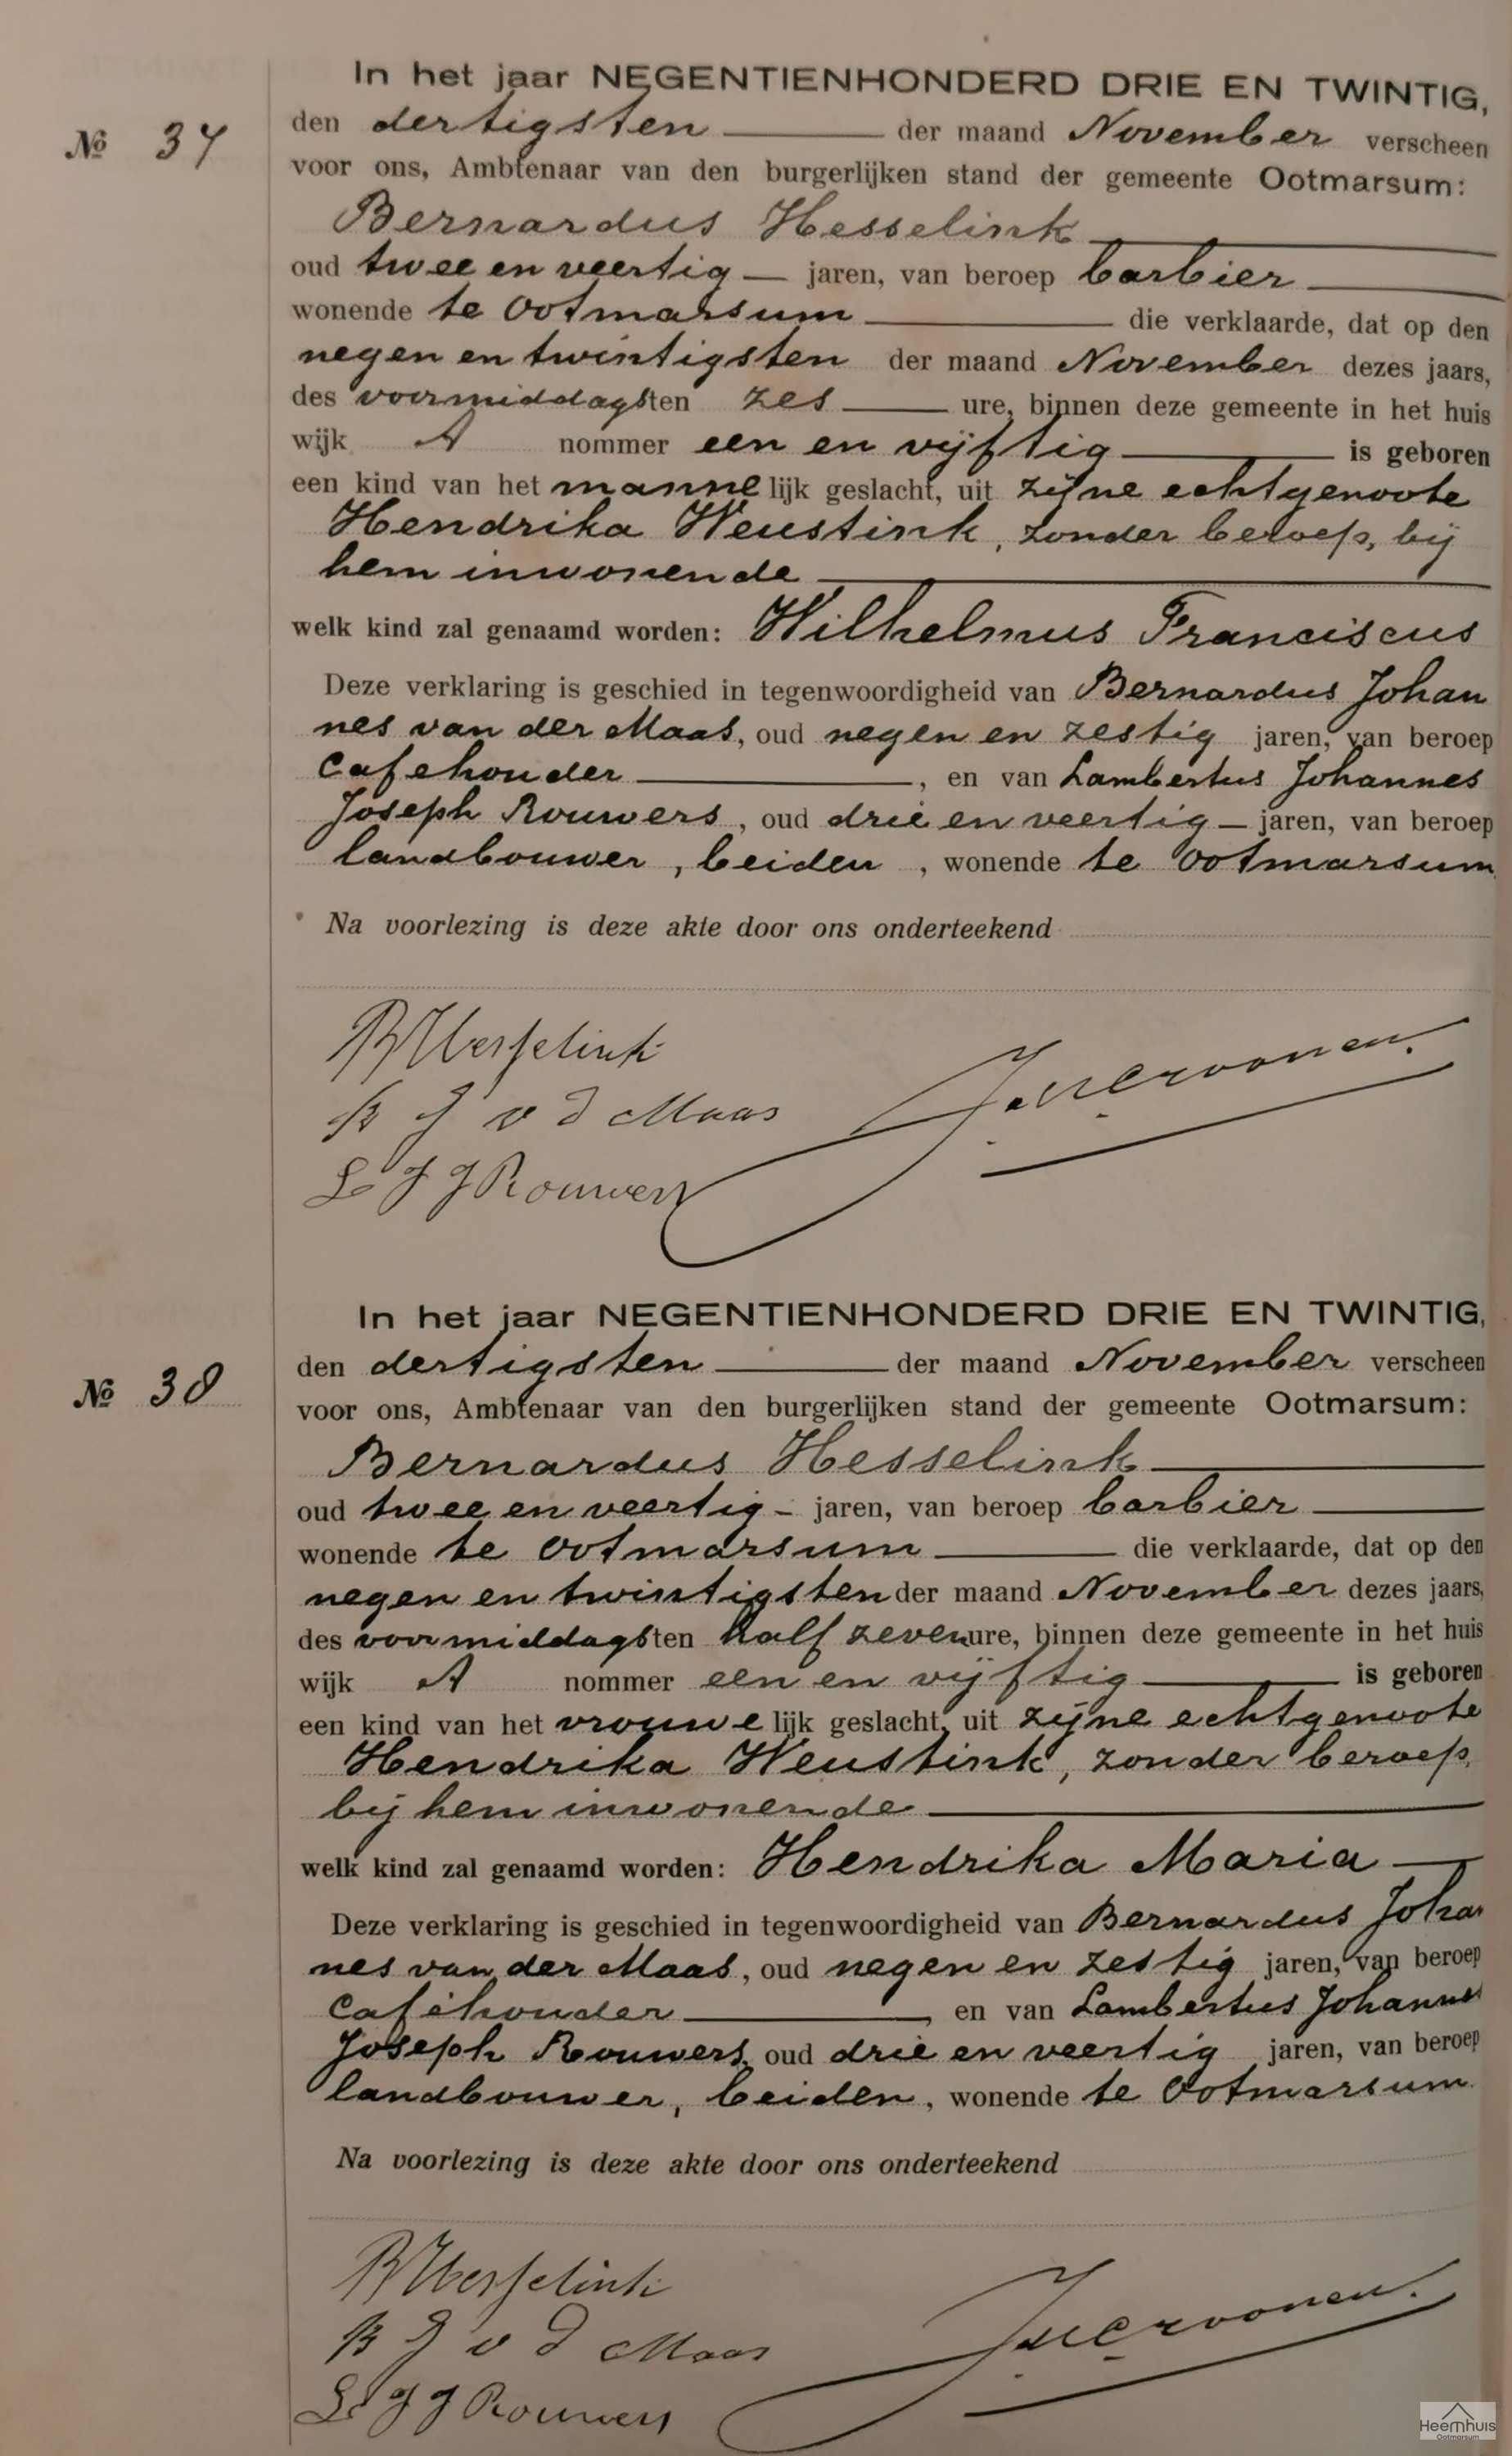 In het jaar NEGENTIENHONDERD DRIE EN TWINTIG,
№ 37
den dertigsten der maand November verscheen
voor ons, Ambtenaar van den burgerlijken stand der gemeente Ootmarsum:
Bernardus Hesselink
oud twee en veertig jaren, van beroep barbier
wonende te Ootmarsum die verklaarde, dat op den
negen en twintigsten der maand November dezes jaars,
des voormiddagsten zes ure, binnen deze gemeente in het huis
wijk A nommer een en vijftig is geboren
een kind van het mannelijk geslacht, uit zijne echtgenoote
Hendrika Weustink, zonder beroep, bij
hem inwonende
welk kind zal genaamd worden: Wilhelmus Franciscus
Deze verklaring is geschied in tegenwoordigheid van Bernardus Johan
nes van der Maas, oud negen en zestig jaren, van beroep
Cafehouder, en van Lambertus Johannes
Joseph Rouwers, oud drie en veertig jaren, van beroep
landbouwer, beiden, wonende te Ootmarsum
Na voorlezing is deze akte door ons onderteekend
B Hesselink
B J v d Maas
L J J Rouwers
In het jaar NEGENTIENHONDERD DRIE EN TWINTIG,
№ 38
den dertigsten der maand November verscheen
voor ons, Ambtenaar van den burgerlijken stand der gemeente Ootmarsum:
Bernardus Hesselink
oud twee en veertig - jaren, van beroep barbier
wonende te Ootmarsum die verklaarde, dat op den
negen en twintigsten der maand November dezes jaars,
des voormiddagsten half zeven ure, binnen deze gemeente in het huis
wijk A nommer een en vijftig is geboren
een kind van het vrouwelijk geslacht, uit zijne echtgenoote
Hendrika Weustink, zonder beroep,
bij hem inwonende
welk kind zal genaamd worden: Hendrika Maria
Deze verklaring is geschied in tegenwoordigheid van Bernardus Johan
nes van der Maas, oud negen en zestig jaren, van beroep
Caféhouder, en van Lambertus Johannes
Joseph Rouwers, oud drie en veertig jaren, van beroep
landbouwer, beiden, wonende te Ootmarsum
Na voorlezing is deze akte door ons onderteekend
B Hesselink
B J v d Maas
L J J Rouwers
Heemhuis
Ootmarsum